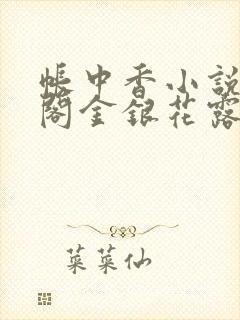 帳中香小說
閣金銀花露
菜菜仙